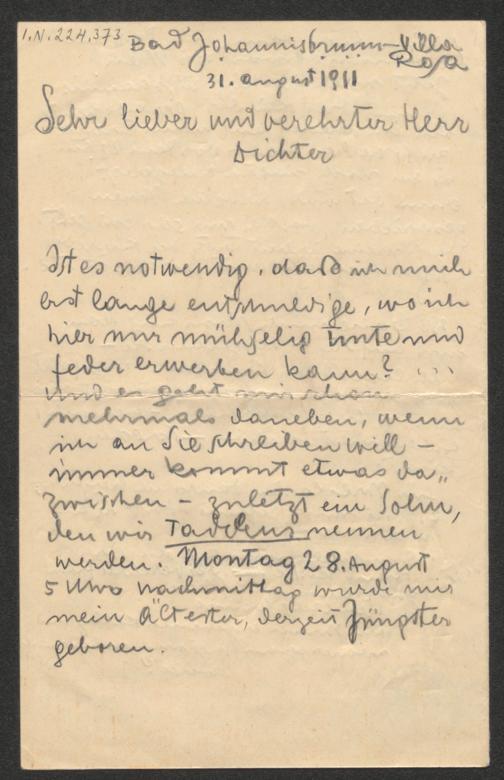 I.N. 224,373
Bad Johannisbrunn – Villa
Rosa
31. august 1911
Sehr lieber und verehrter Herr
Dichter
Ist es notwendig, daß ich mich
erst lange entschuldige, wo ich
hier nur mühselig Tinte und
Feder erwerben kann? ...
Und es geht mir schon
mehrmals daneben, wenn
ich an Sie schreiben will –
immer kommt etwas da„
zwischen – zuletzt ein Sohn,
den wir Taddeus nennen
werden. Montag 28. August
5 Uhr nachmittag wurde mir
mein Ältester, derzeit Jüngster
geboren.